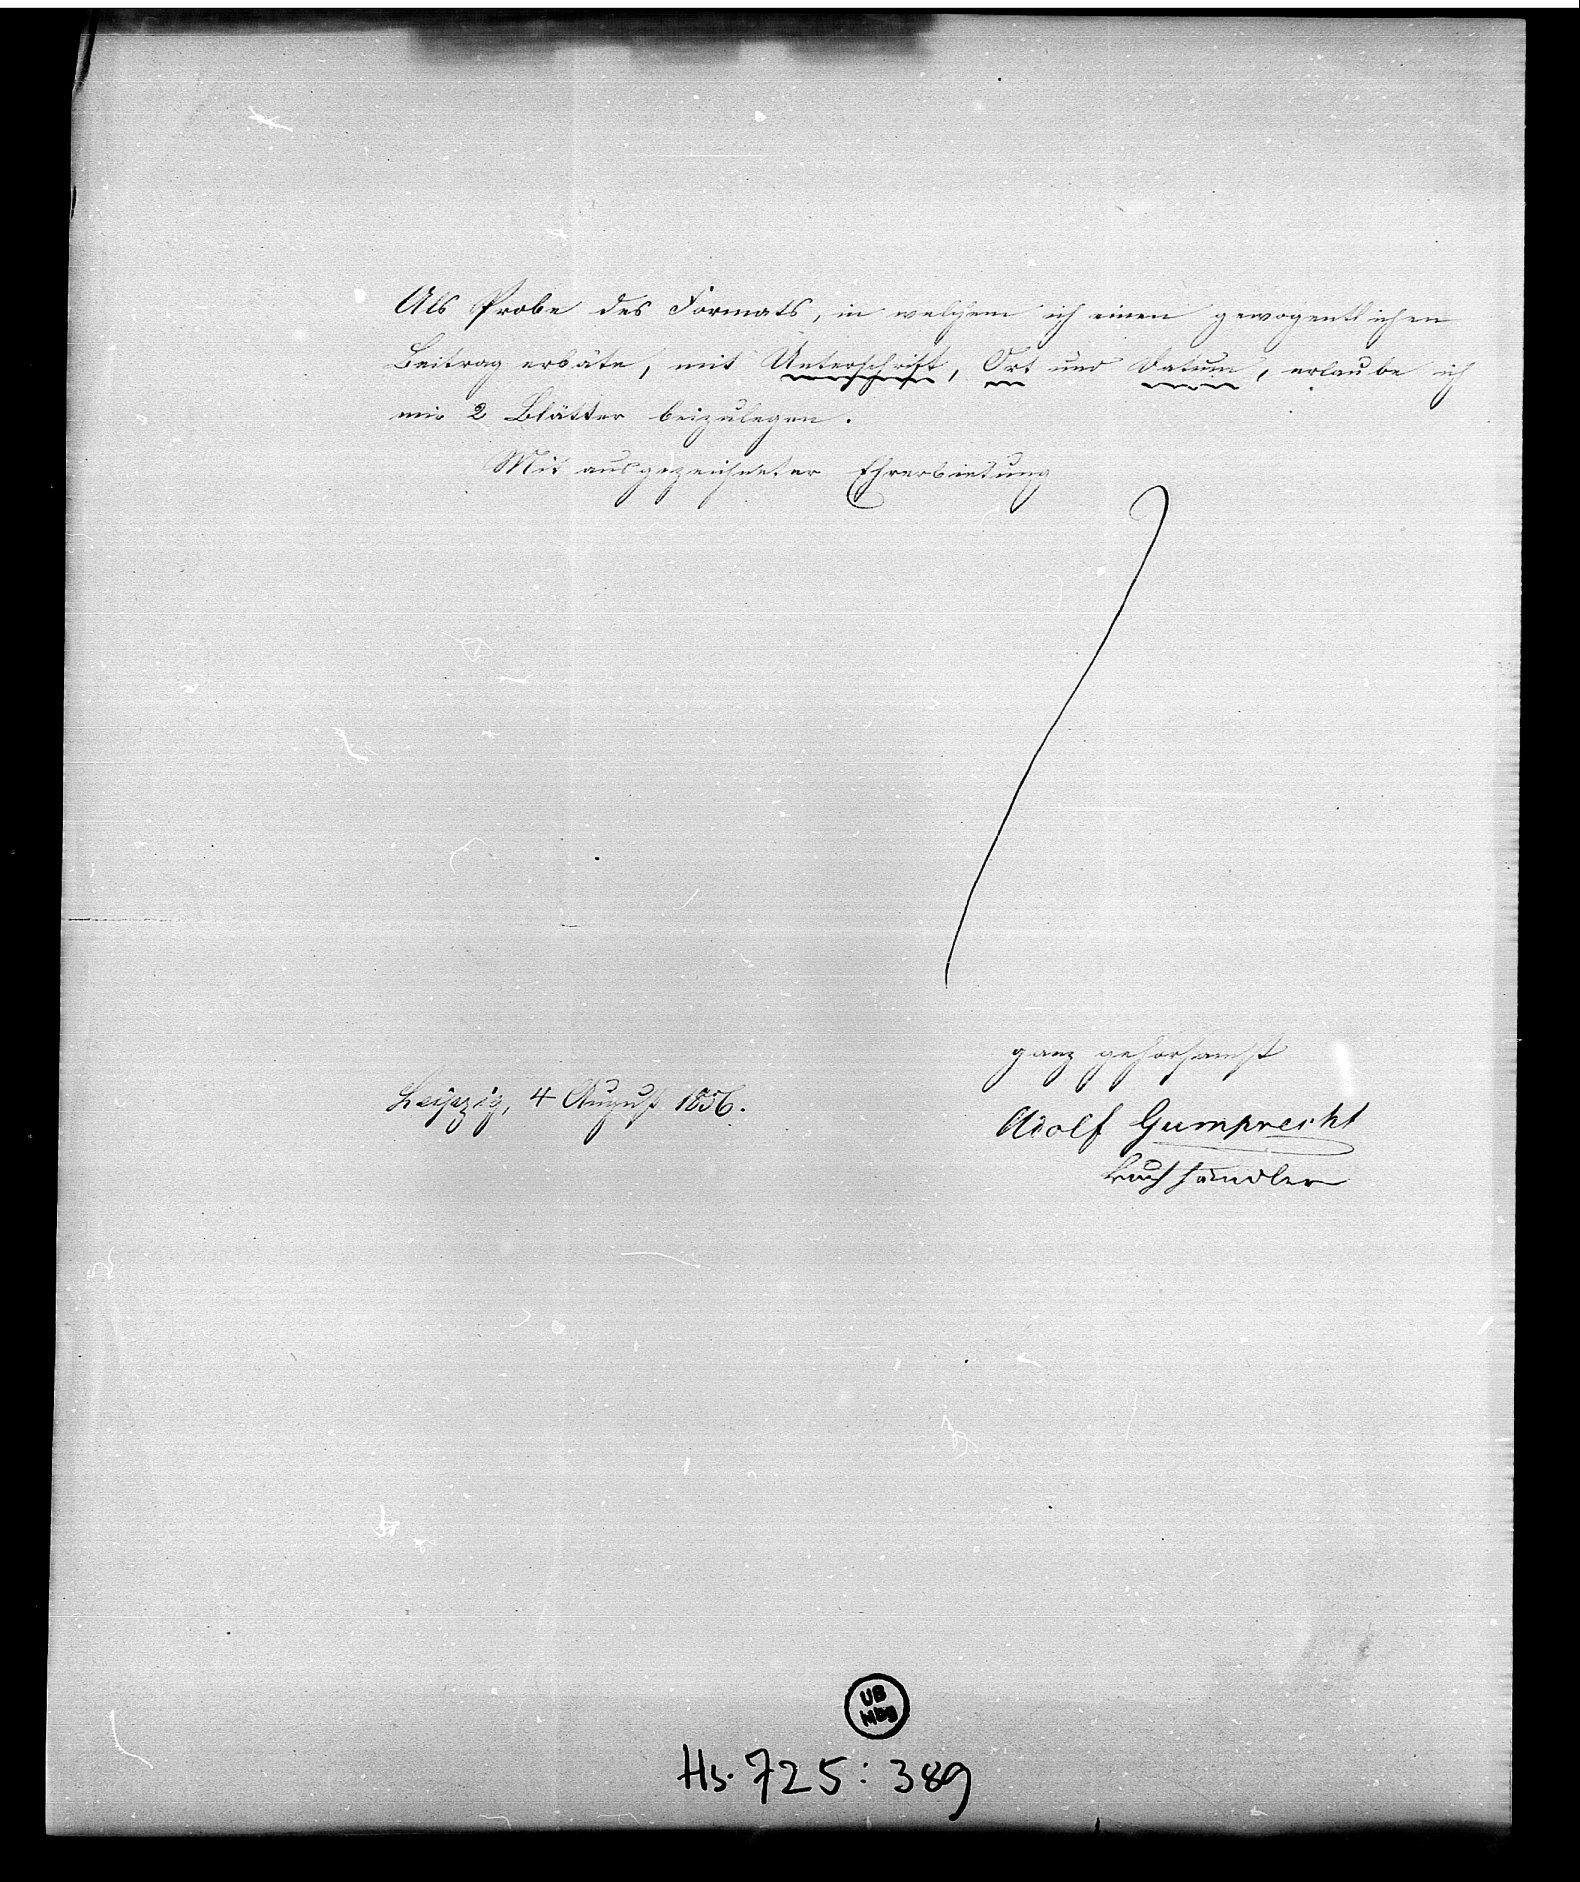 Als Probe des Formats, in welchem ich einen gewogentlichen
Beitrag erbäte, mit Unterschrift, Ort und Datum, erlaube ich
mir 2 Blätter beizulegen.
Mit ausgezeichneter Ehrerbietung
ganz gehorsamst
Leipzig, 4 August 1856.
Adolf Gumprecht
Buchhändler
UB
Mbg
Hs. 725: 389